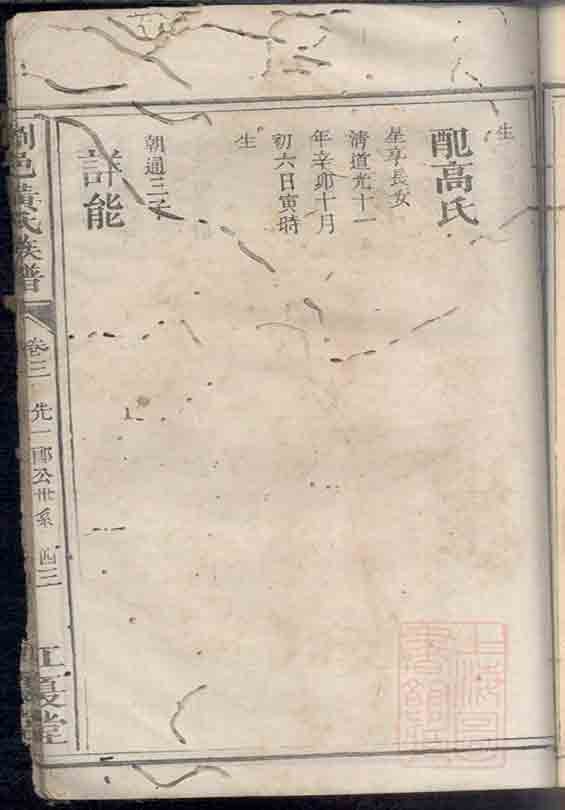 生
配高氏
星亭長女
清道光十一
年辛卯十月
初六日寅時
生
朝通三子
詳能
瀏邑黃氏族譜
卷三
先一郎公世系
四三
江夏堂
上海圖書館藏